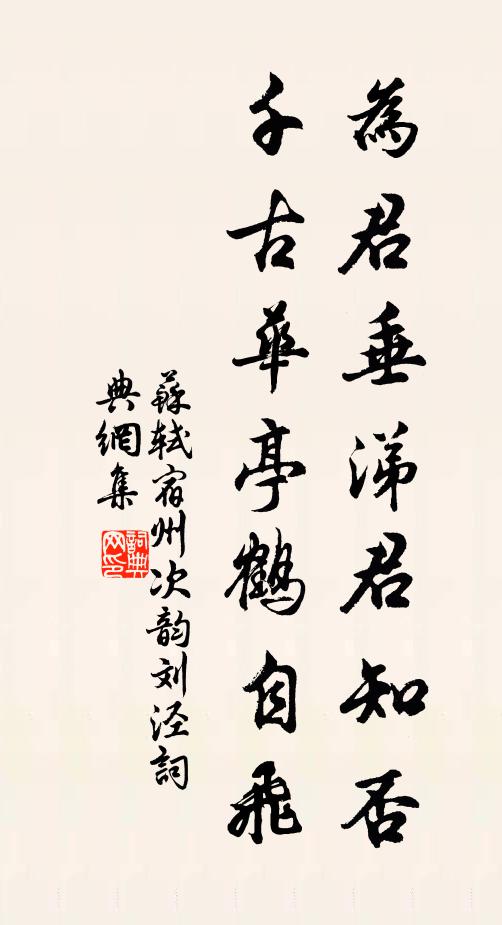 為君垂涕君知否
千古華亭鶴自飛
蘇軾宿州次韵刘泾詞
典網集
詞典
网印